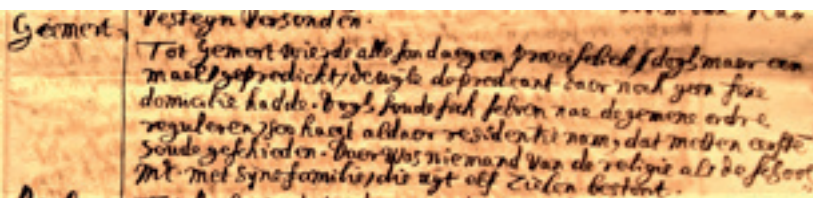 Vesteyn Versonden.
Gemert. Tot Gemert wierde alle sondaegen preciselick / dogh maer een
mael / gepredickt / dewyle de predicant daer noch geen fixe
domicilie hadde. Dogh soude sich selven nae de gemene ordre
reguleren / soo haest aldaer residentie nam, dat metten eersten
soude geschieden. Daer was niemand van de religie als de School
Mr. met syne familie, die uyt elf zielen bestont.